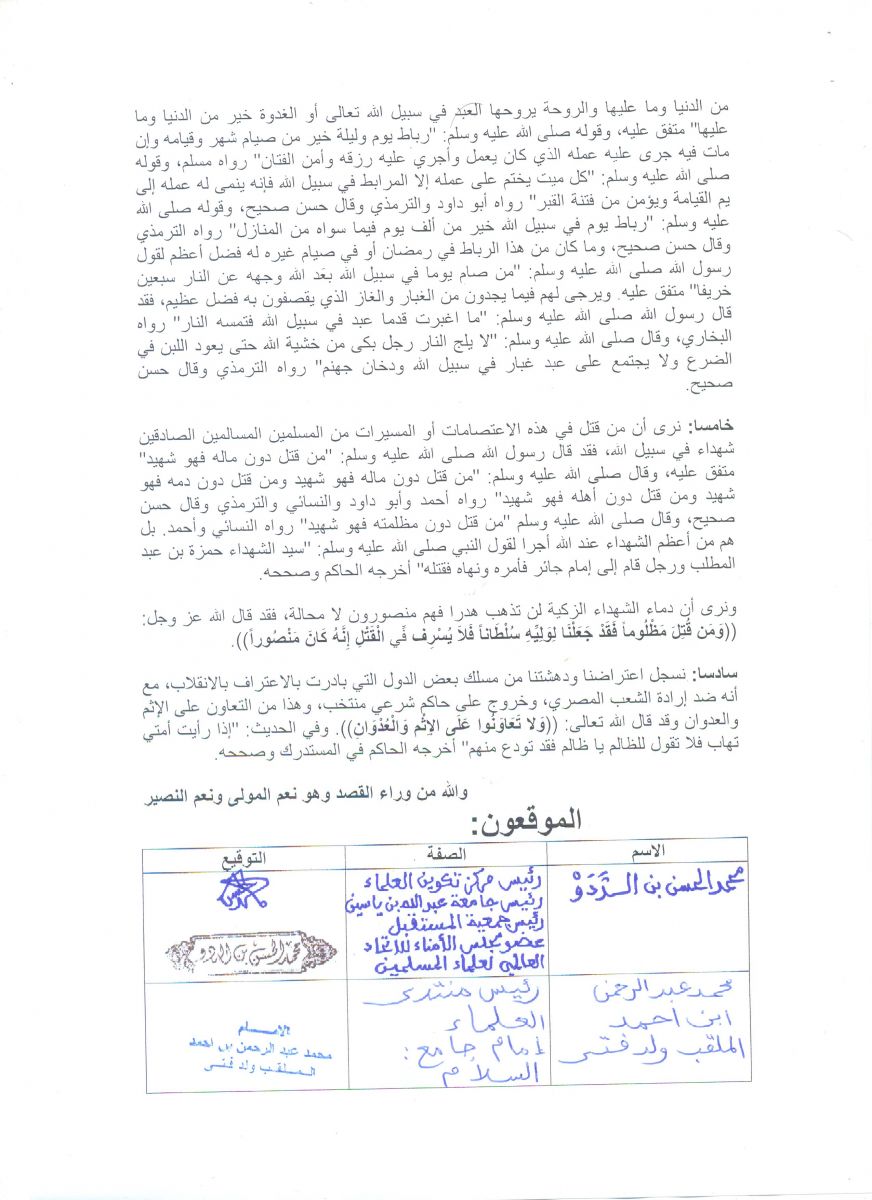 من الدنيا وما عليها والروحة يروحها العبد في سبيل الله تعالى أو الغدوة خير من الدنيا وما
عليها" متفق عليه، وقوله صلى الله عليه وسلم: "رباط يوم وليلة خير من صيام شهر وقيامه وإن
مات فيه جرى عليه عمله الذي كان يعمل وأجري عليه رزقه وأمن الفتان" رواه مسلم، وقوله
صلى الله عليه وسلم: "كل ميت يختم على عمله إلا المرابط في سبيل الله فإنه ينمى له عمله إلى
يم القيامة ويؤمن من فتنة القبر" رواه أبو داود والترمذي وقال حسن صحيح، وقوله صلى الله
عليه وسلم: "رباط يوم في سبيل الله خير من ألف يوم فيما سواه من المنازل" رواه الترمذي
وقال حسن صحيح، وما كان من هذا الرباط في رمضان أو في صيام غيره له فضل أعظم لقول
رسول الله صلى الله عليه وسلم: "من صام يوما في سبيل الله بعَد الله وجهه عن النار سبعين
خريفا" متفق عليه. ويرجى لهم فيما يجدون من الغبار والغاز الذي يقصفون به فضل عظيم، فقد
قال رسول الله صلى الله عليه وسلم: "ما اغبرت قدما عبد في سبيل الله فتمسه النار" رواه
البخاري، وقال صلى الله عليه وسلم: "لا يلج النار رجل بكى من خشية الله حتى يعود اللبن في
الضرع ولا يجتمع على عبد غبار في سبيل الله ودخان جهنم" رواه الترمذي وقال حسن
صحيح.
خامسا: نرى أن من قتل في هذه الاعتصامات أو المسيرات من المسلمين المسالمين الصادقين
شهداء في سبيل الله، فقد قال رسول الله صلى الله عليه وسلم: "من قتل دون ماله فهو شهيد"
متفق عليه، وقال صلى الله عليه وسلم: "من قتل دون ماله فهو شهيد ومن قتل دون دمه فهو
شهيد ومن قتل دون أهله فهو شهيد" رواه أحمد وأبو داود والنسائي والترمذي وقال حسن
صحيح، وقال صلى الله عليه وسلم "من قتل دون مظلمته فهو شهيد" رواه النسائي وأحمد. بل
هم من أعظم الشهداء عند الله أجرا لقول النبي صلى الله عليه وسلم: "سيد الشهداء حمزة بن عبد
المطلب ورجل قام إلى إمام جائر فأمره ونهاه فقتله" أخرجه الحاكم وصححه.
ونرى أن دماء الشهداء الزكية لن تذهب هدرا فهم منصورون لا محالة، فقد قال الله عز وجل:
((وَمَن قُتِلَ مَظْلُوماً فَقَدْ جَعَلْنَا لِوَلِيِّهِ سُلْطَاناً فَلاَ يُسْرِف فِّي الْقَتْلِ إِنَّهُ كَانَ مَنْصُوراً)).
سادسا: نسجل اعتراضنا ودهشتنا من مسلك بعض الدول التي بادرت بالاعتراف بالانقلاب، مع
أنه ضد إرادة الشعب المصري، وخروج على حاكم شرعي منتخب، وهذا من التعاون على الإثم
والعدوان وقد قال الله تعالى: ((وَلا تَعَاوَنُوا عَلَى الإِثْمِ وَالْعُدْوَانِ)). وفي الحديث: "إذا رأيت أمتي
تهاب فلا تقول للظالم يا ظالم فقد تودع منهم" أخرجه الحاكم في المستدرك وصححه.
والله من وراء القصد وهو نعم المولى ونعم النصير
الموقعون:
الاسم الصفة التوقيع
محمد الحسن بن الدَّدَوْ
رئيس مركز تكوين العلماء
رئيس جامعة عبد الله بن ياسين
رئيس جمعية المستقبل
عضو مجلس الأمناء للاتحاد
العالمي لعلماء المسلمين
محمد الحسن بن الددو
محمد عبد الرحمن
ابن احمد
الملقب ولد فتى
رئيس منتدى
العلماء
إمام جامع:
السلام
الامام
محمد عبد الرحمن بن احمد
الملقب ولد فتى